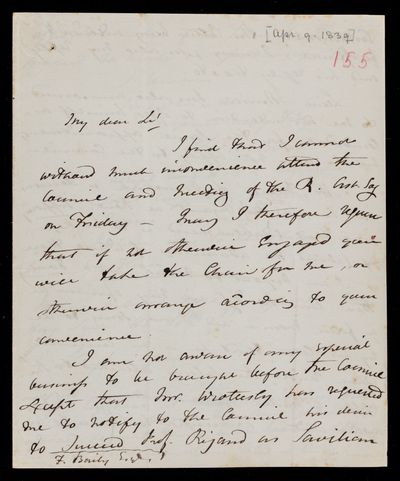 [Apr. 9. 1839]
155
My dear Sir
I find that I cannot
without much inconvenience attend the
Council and Meeting of the R. Ast. Soc
on Friday – May I therefore request
that if not otherwise engaged you
will take the Chair for me, or
otherwise arrange according to your
convenience.
I am not aware of any especial
business to be brought before the Council
except that Mr. Wrottesley has requested
me to notify to the Council his desire
to succeed Prof. Rigaud as Savilian
F. Baily Esqr.